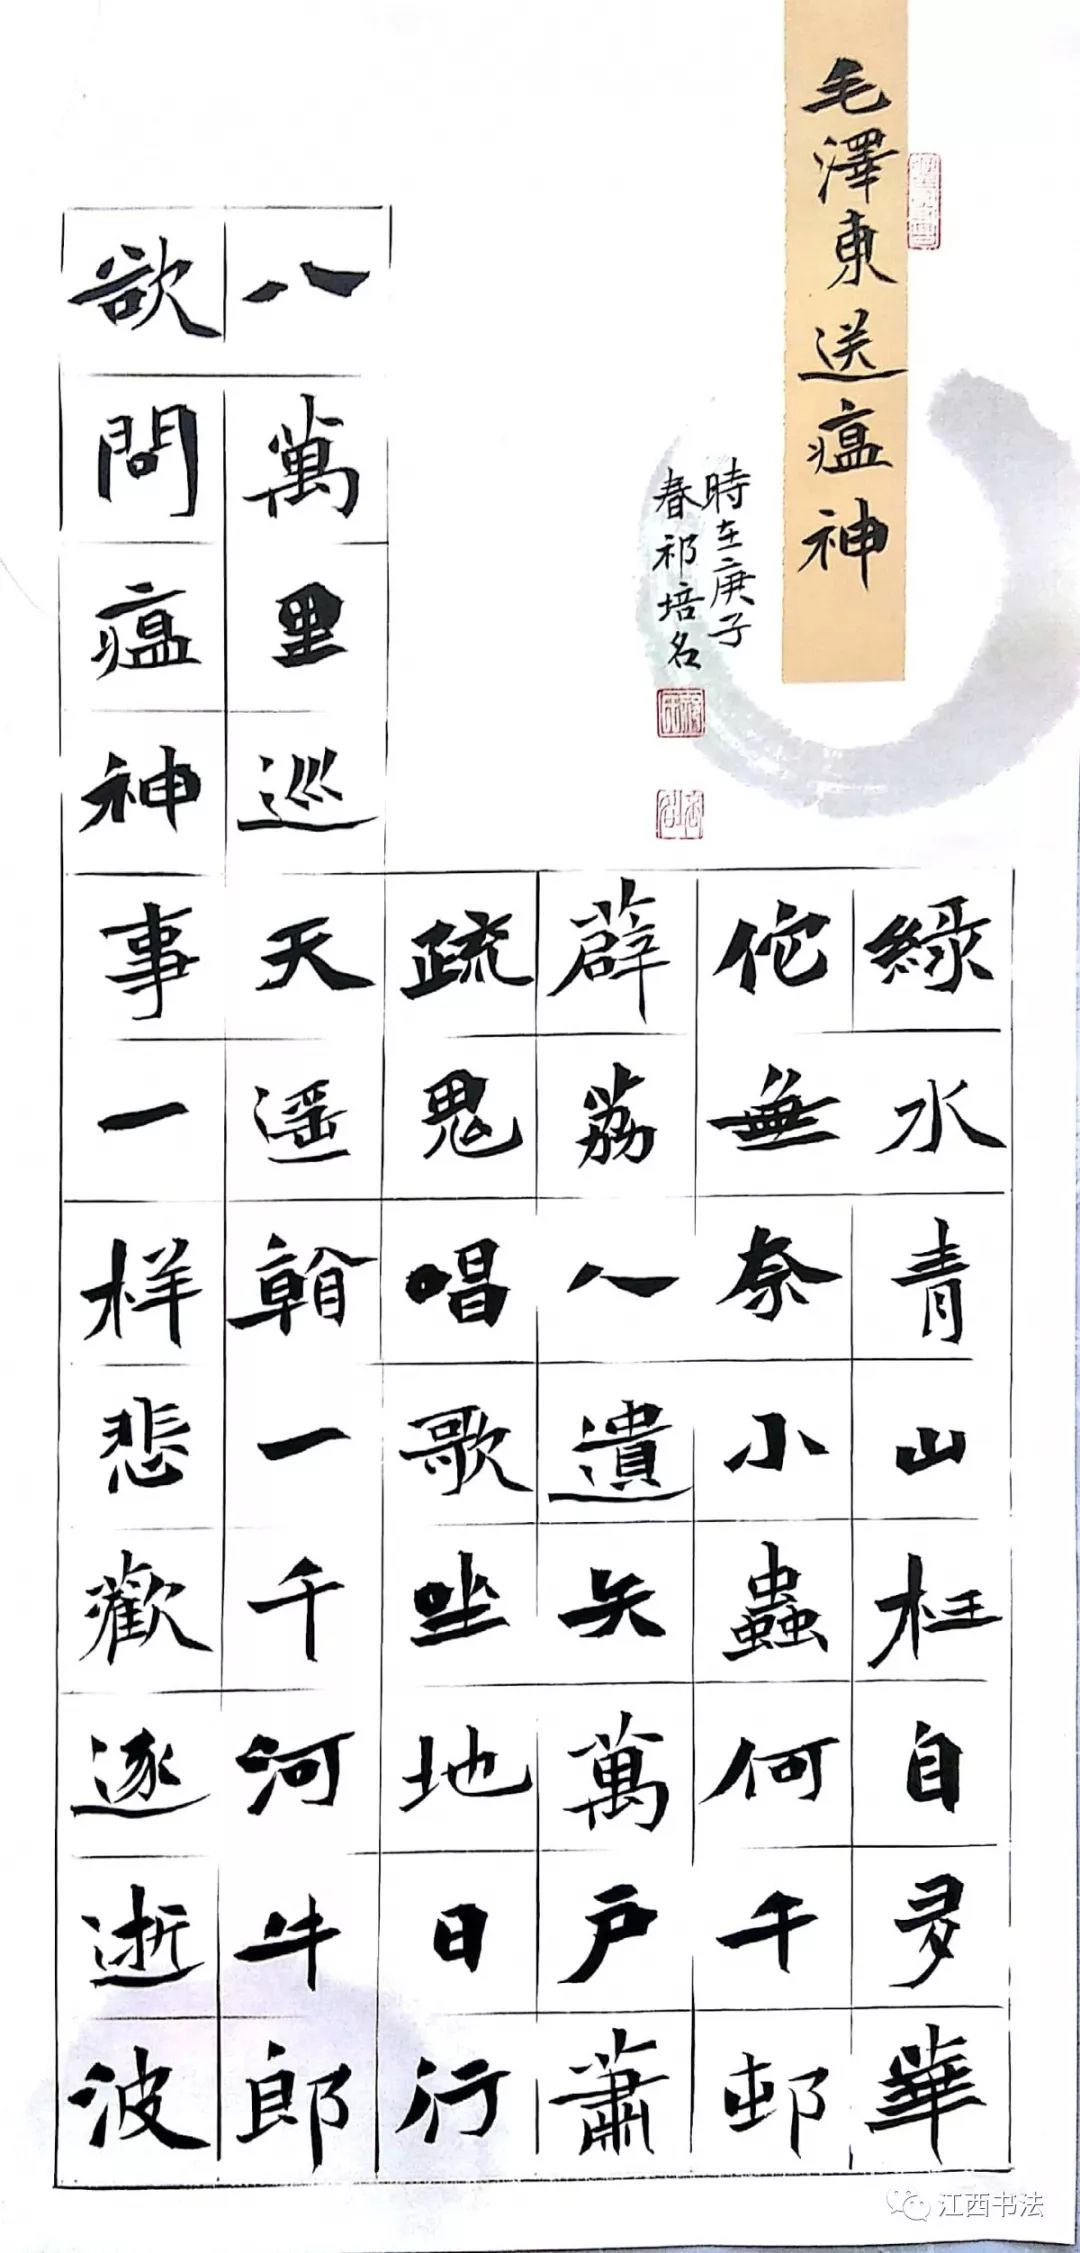 毛澤東送瘟神
時在庚子
春祁培名
綠水青山枉自多華
佗無奈小蟲何千邨
薜荔人遺矢萬戶蕭
疏鬼唱歌坐地日行
八萬里巡天遥看一千河牛郎
欲問瘟神事一样悲歡逐逝波
江西书法